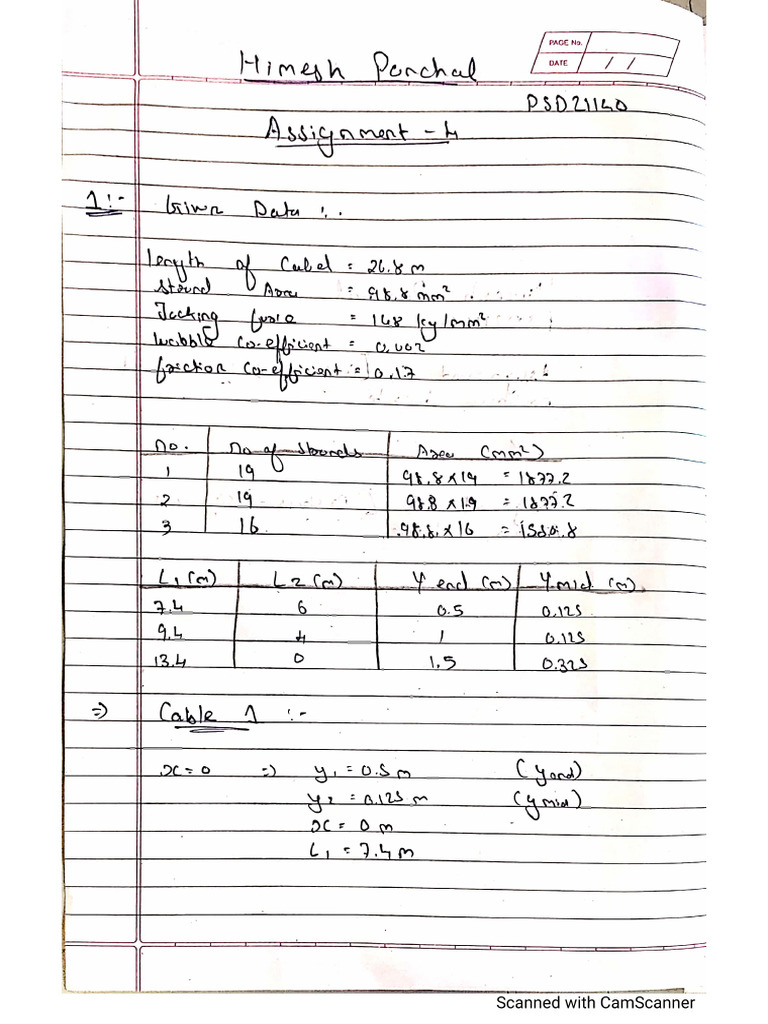 PAGE No.
DATE / /
Himesh Panchal
PSD21140
Assignment - 4
1:- Given Data :-
Length of Cabel = 26.8 m
Strand Area = 98.8 mm²
Jacking force = 148 kg/mm²
Wobble Co-efficient = 0.002
friction Co-efficient = 0.17
No. No of Strands Area (mm²)
1 19 98.8 x 19 = 1877.2
2 19 98.8 x 19 = 1877.2
3 16 98.8 x 16 = 1580.8
L1 (m) L2 (m) Y end (m) Y mid (m)
7.4 6 0.5 0.125
9.4 4 1 0.125
13.4 0 1.5 0.325
⇒ Cable 1 :-
x = 0 ⇒ y₁ = 0.5 m (yend)
y₂ = 0.125 m (ymid)
x = 0 m
L₁ = 7.4 m
Scanned with CamScanner